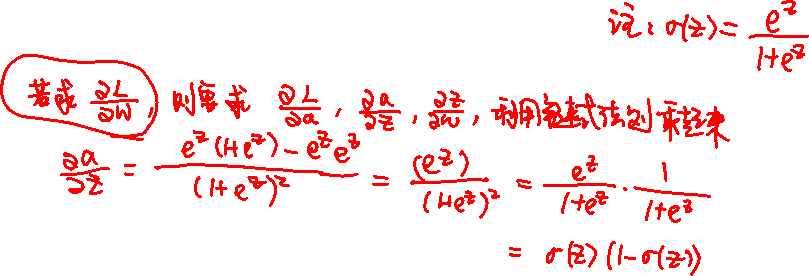 注：σ(z)=e^z/(1+e^z)
若求 ∂L/∂w，则需求 ∂L/∂a，∂a/∂z，∂z/∂w，利用链式法则乘起来
∂a/∂z = (e^z(1+e^z)-e^z e^z)/(1+e^z)^2 = (e^z)/(1+e^z)^2 = e^z/(1+e^z) · 1/(1+e^z)
= σ(z)(1-σ(z))